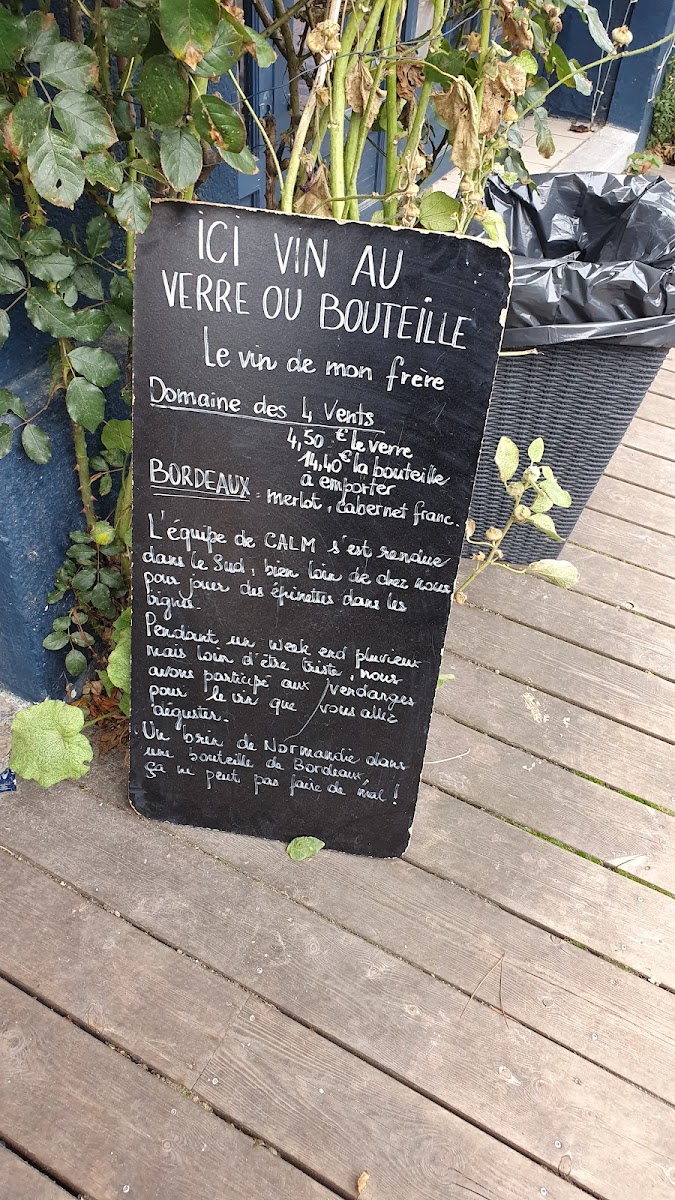 ICI VIN AU
VERRE OU BOUTEILLE
Le vin de mon frère
Domaine des 4 Vents
4,50 € le verre
14,40 € la bouteille
à emporter
BORDEAUX : merlot, cabernet franc.
L'équipe de CALM s'est rendue
dans le Sud, bien loin de chez nous
pour jouer des épinettes dans les
vignes.
Pendant un week end pluvieux
mais loin d'être triste, nous
avons participé aux vendanges
pour le vin que vous allez
déguster.
Un brin de Normandie dans
une bouteille de Bordeaux,
ça ne peut pas faire de mal !